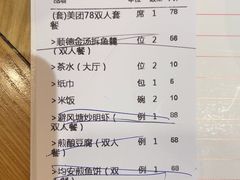 (套)美团78双人套 席 1 78
餐
>顺德金汤拆鱼羹 位 2 56
(双人餐)
>茶水(大厅) 位 2 6
>纸巾 包 1 5
>米饭 碗 2 10
>避风塘炒明虾( 例 1 88
双人餐)
>煎酿豆腐(双人 例 1 58
餐)
>均安煎鱼饼(双 例 1 68
人餐)